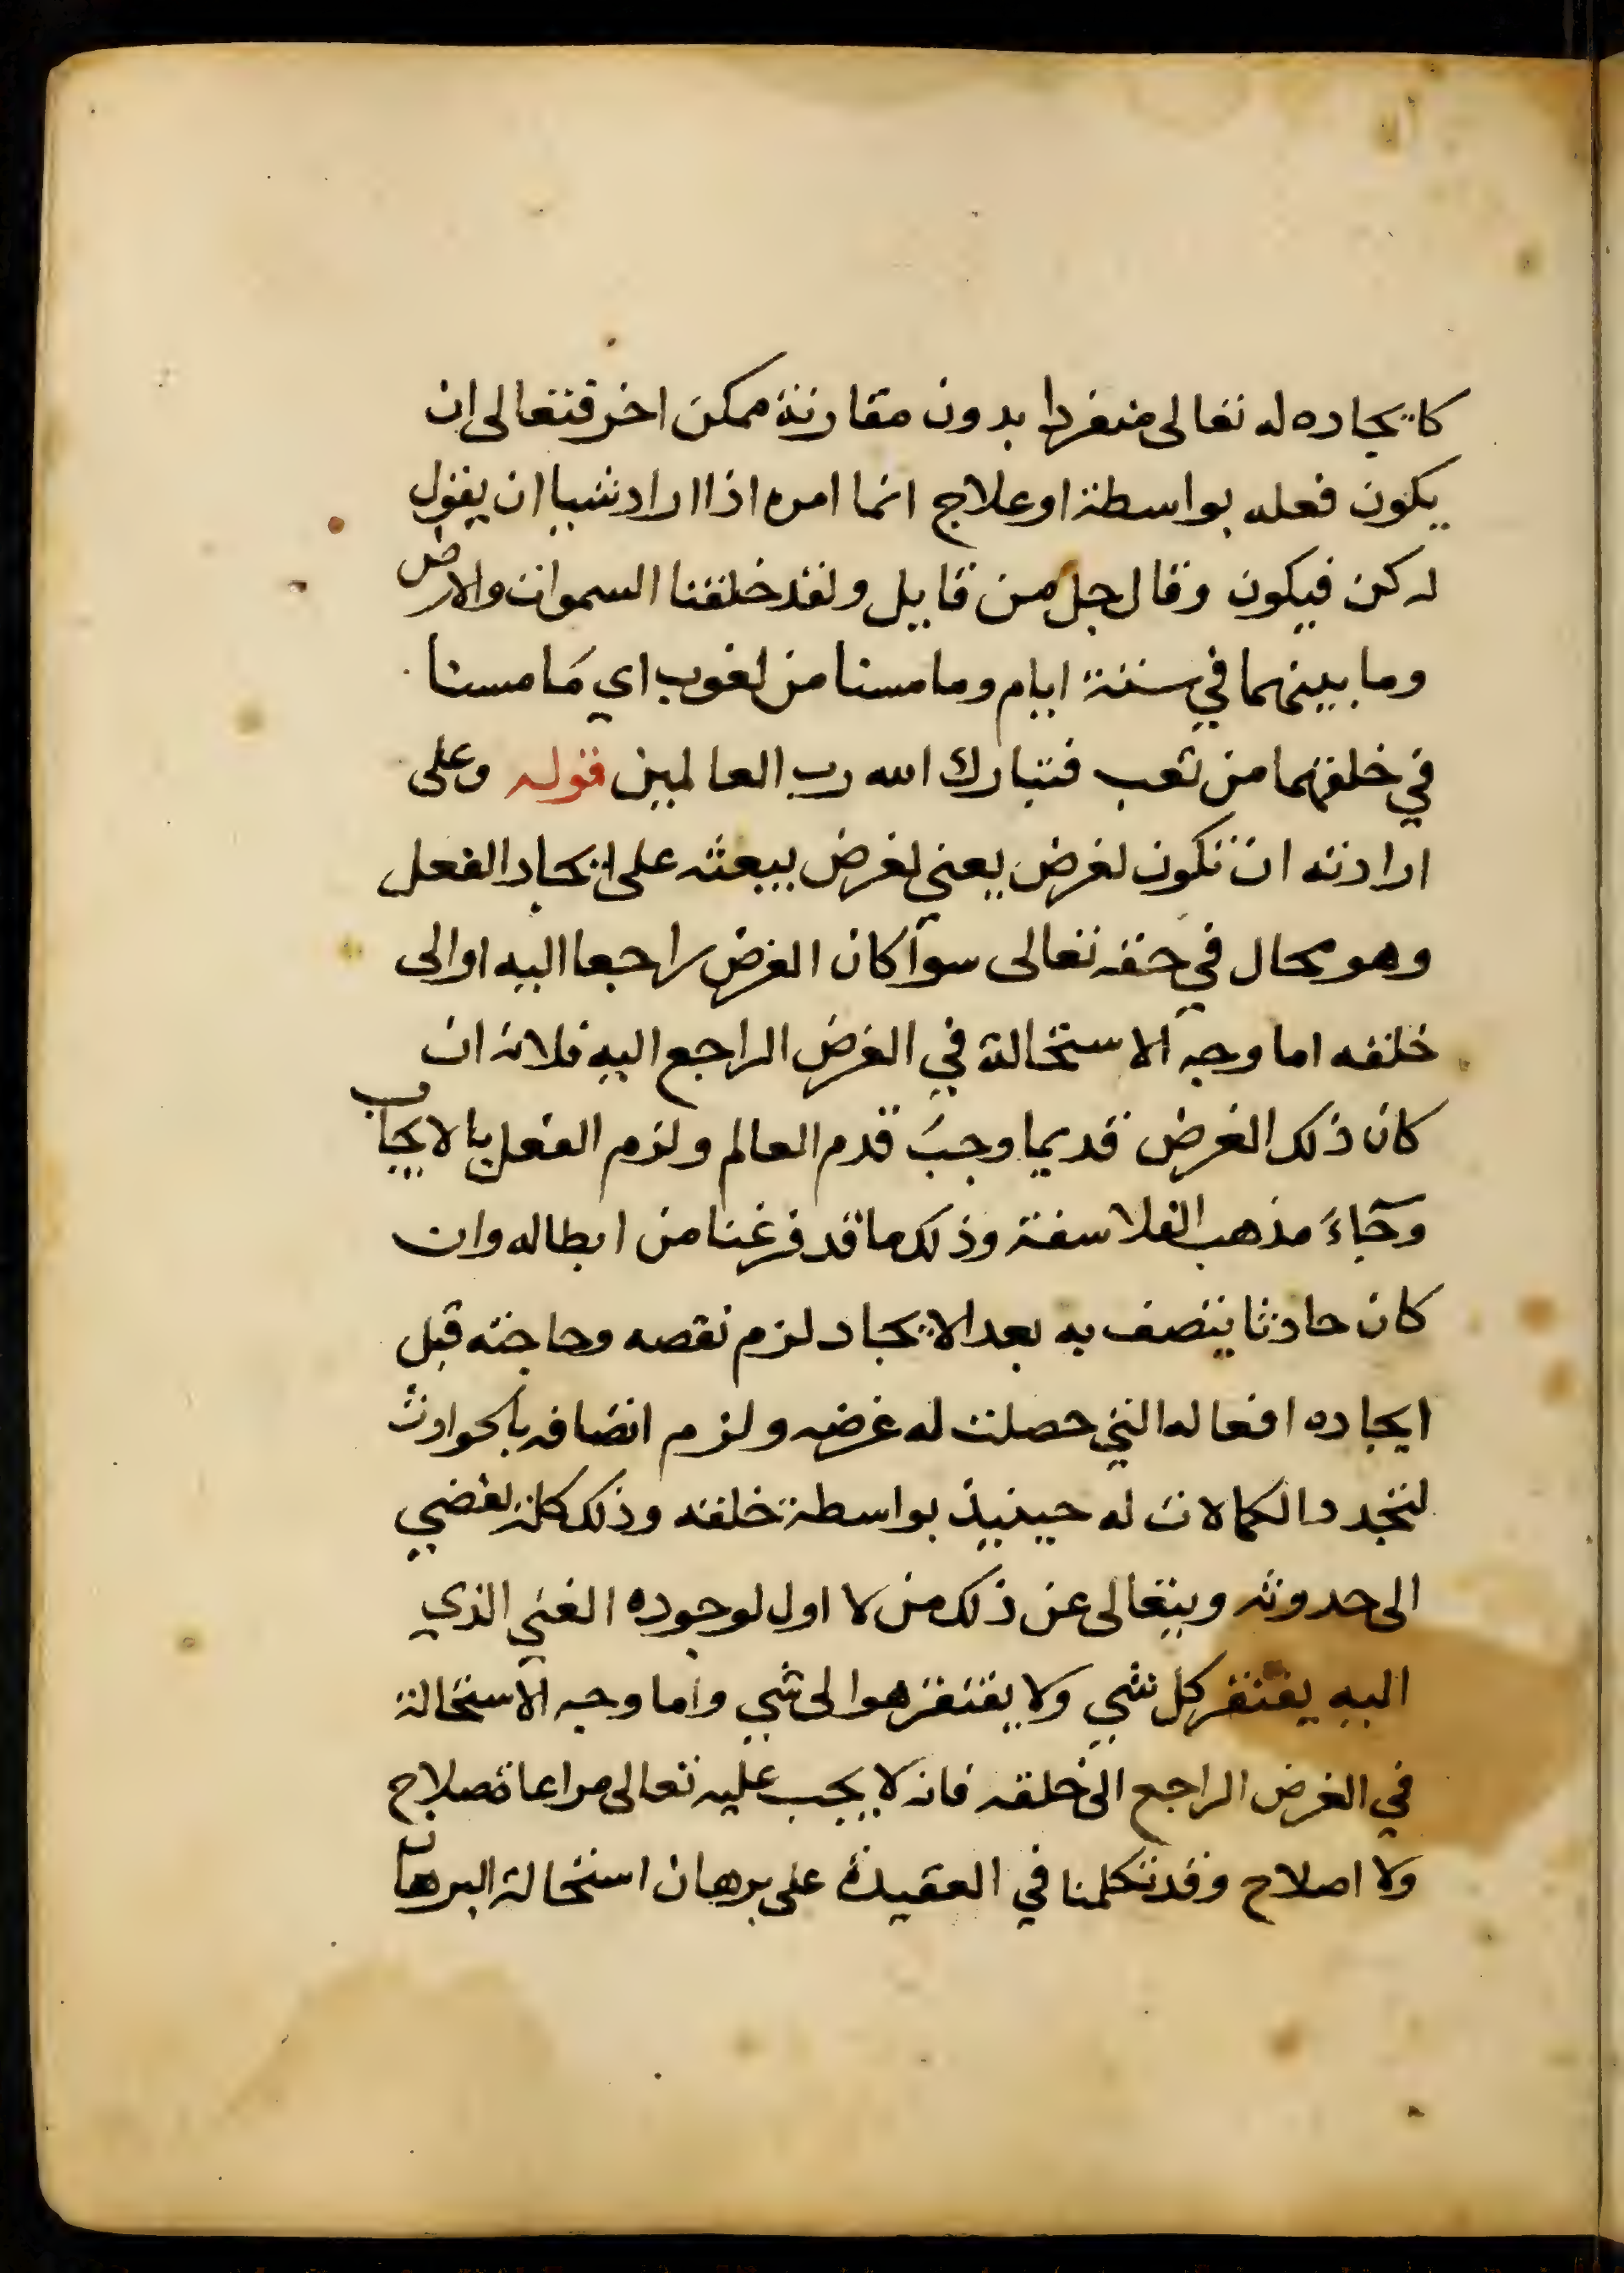 كايجاده له تعالى منفردا بدون مقارنة ممكن اخر فتعالى ان
يكون فعله بواسطة او علاج انما امره اذا اراد شيا ان يقول
له كن فيكون وقال جل من قايل ولقد خلقنا السموات والارض
وما بينهما في ستة ايام وما مسنا من لغوب اي مَا مسنا
في خلقهما من تعب فتبارك الله رب العالمين قوله وعلى
ارادته ان تكون لغرض يعني لغرض يبعثه على ايجاد الفعل
وهو محال في حقه تعالى سوآ كان الغرض راجعا اليه او الى
خلقه اما وجه الاستحالة في الغرض الراجع اليه فلانه ان
كان ذلك الغرض قديما وجبَ قدم العالم ولزم الفعل بالايجاب
وجآءَ مذهب الفلاسفة وذلك ما قد فرغنا من ابطاله وان
كان حادثا يتصف به بعد الايجاد لزم نقصه وحاجته قبل
ايجاده افعاله التي حصلت له غرضه ولزم اتصافه بالحوادث
لتجدد الكمالات له حينيذ بواسطة خلقه وذلك كله يفضي
الى حدوثه ويتعالى عن ذلك من لا اول لوجوده الغني الذي
اليه يفتقر كل شي ولا يفتقر هو الى شي واما وجه الاستحالة
في الغرض الراجع الى خلقه فانه لا يجب عليه تعالى مراعاة صلاح
ولا اصلاح وقد تكلمنا في العقيدة على برهان استحالة البرهان